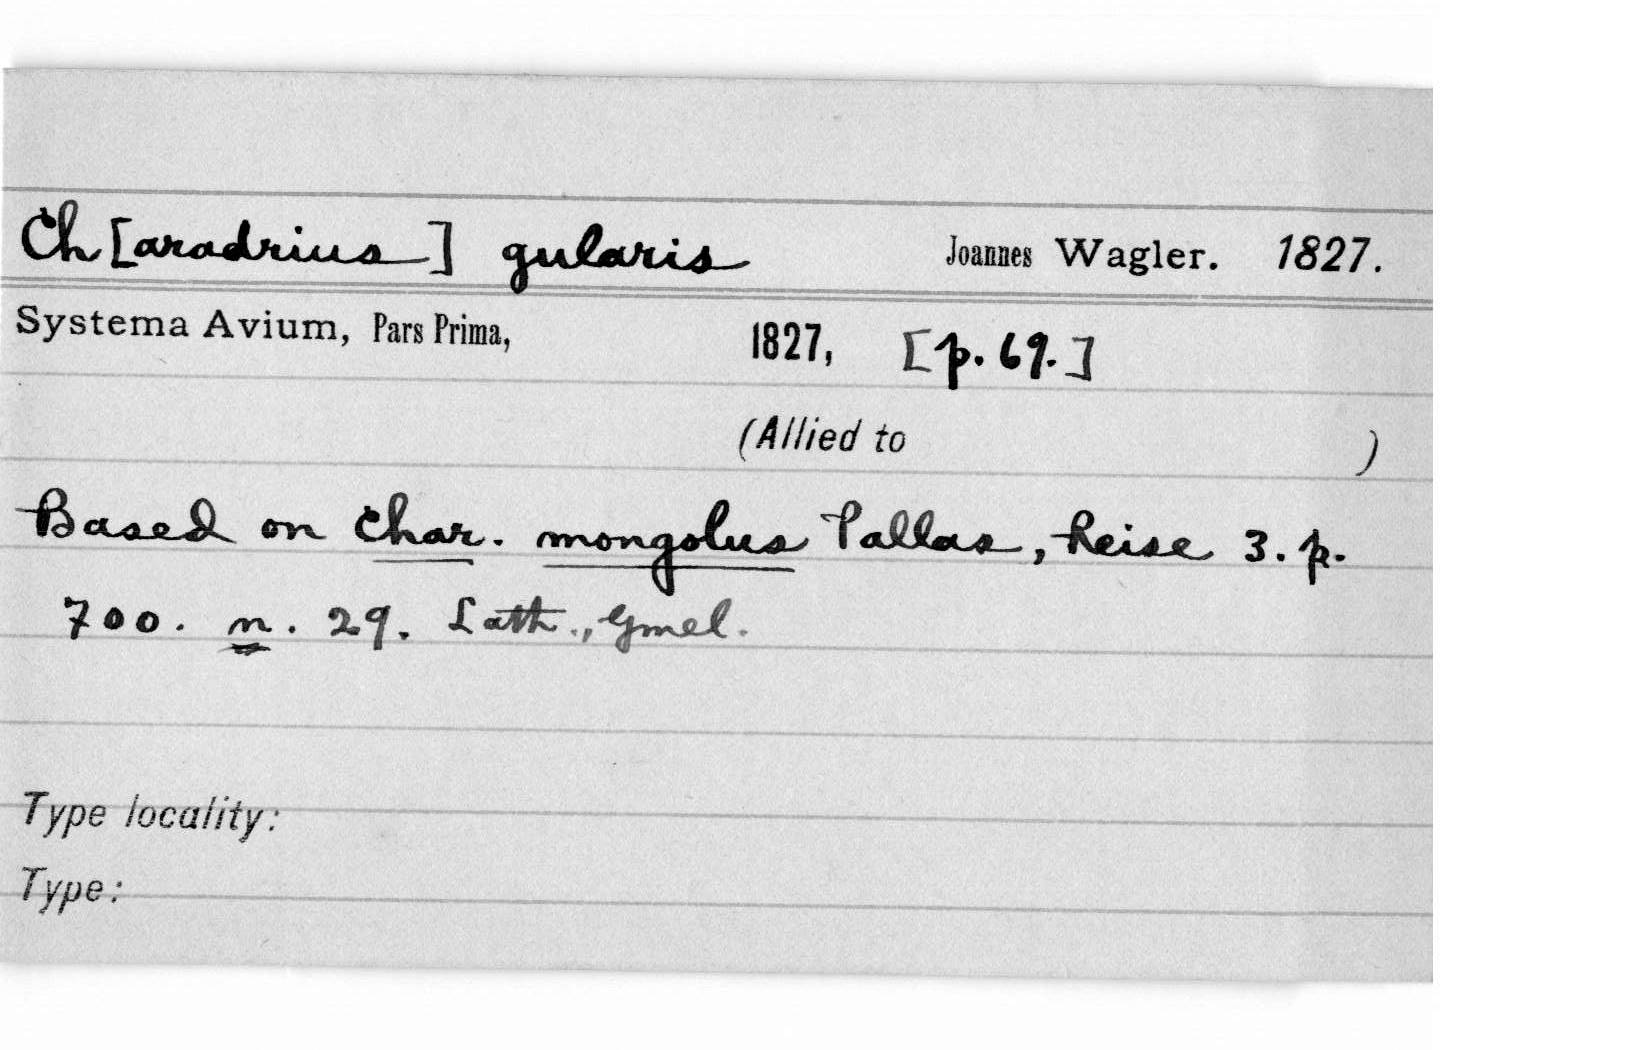 Ch[aradrius] gularis Joannes Wagler. 1827.
Systema Avium, Pars Prima, 1827, [p. 69.]
(Allied to )
Based on Char. mongolus Pallas, Reise 3. p.
700. n. 29. Lath., Gmel.
Type locality:
Type: